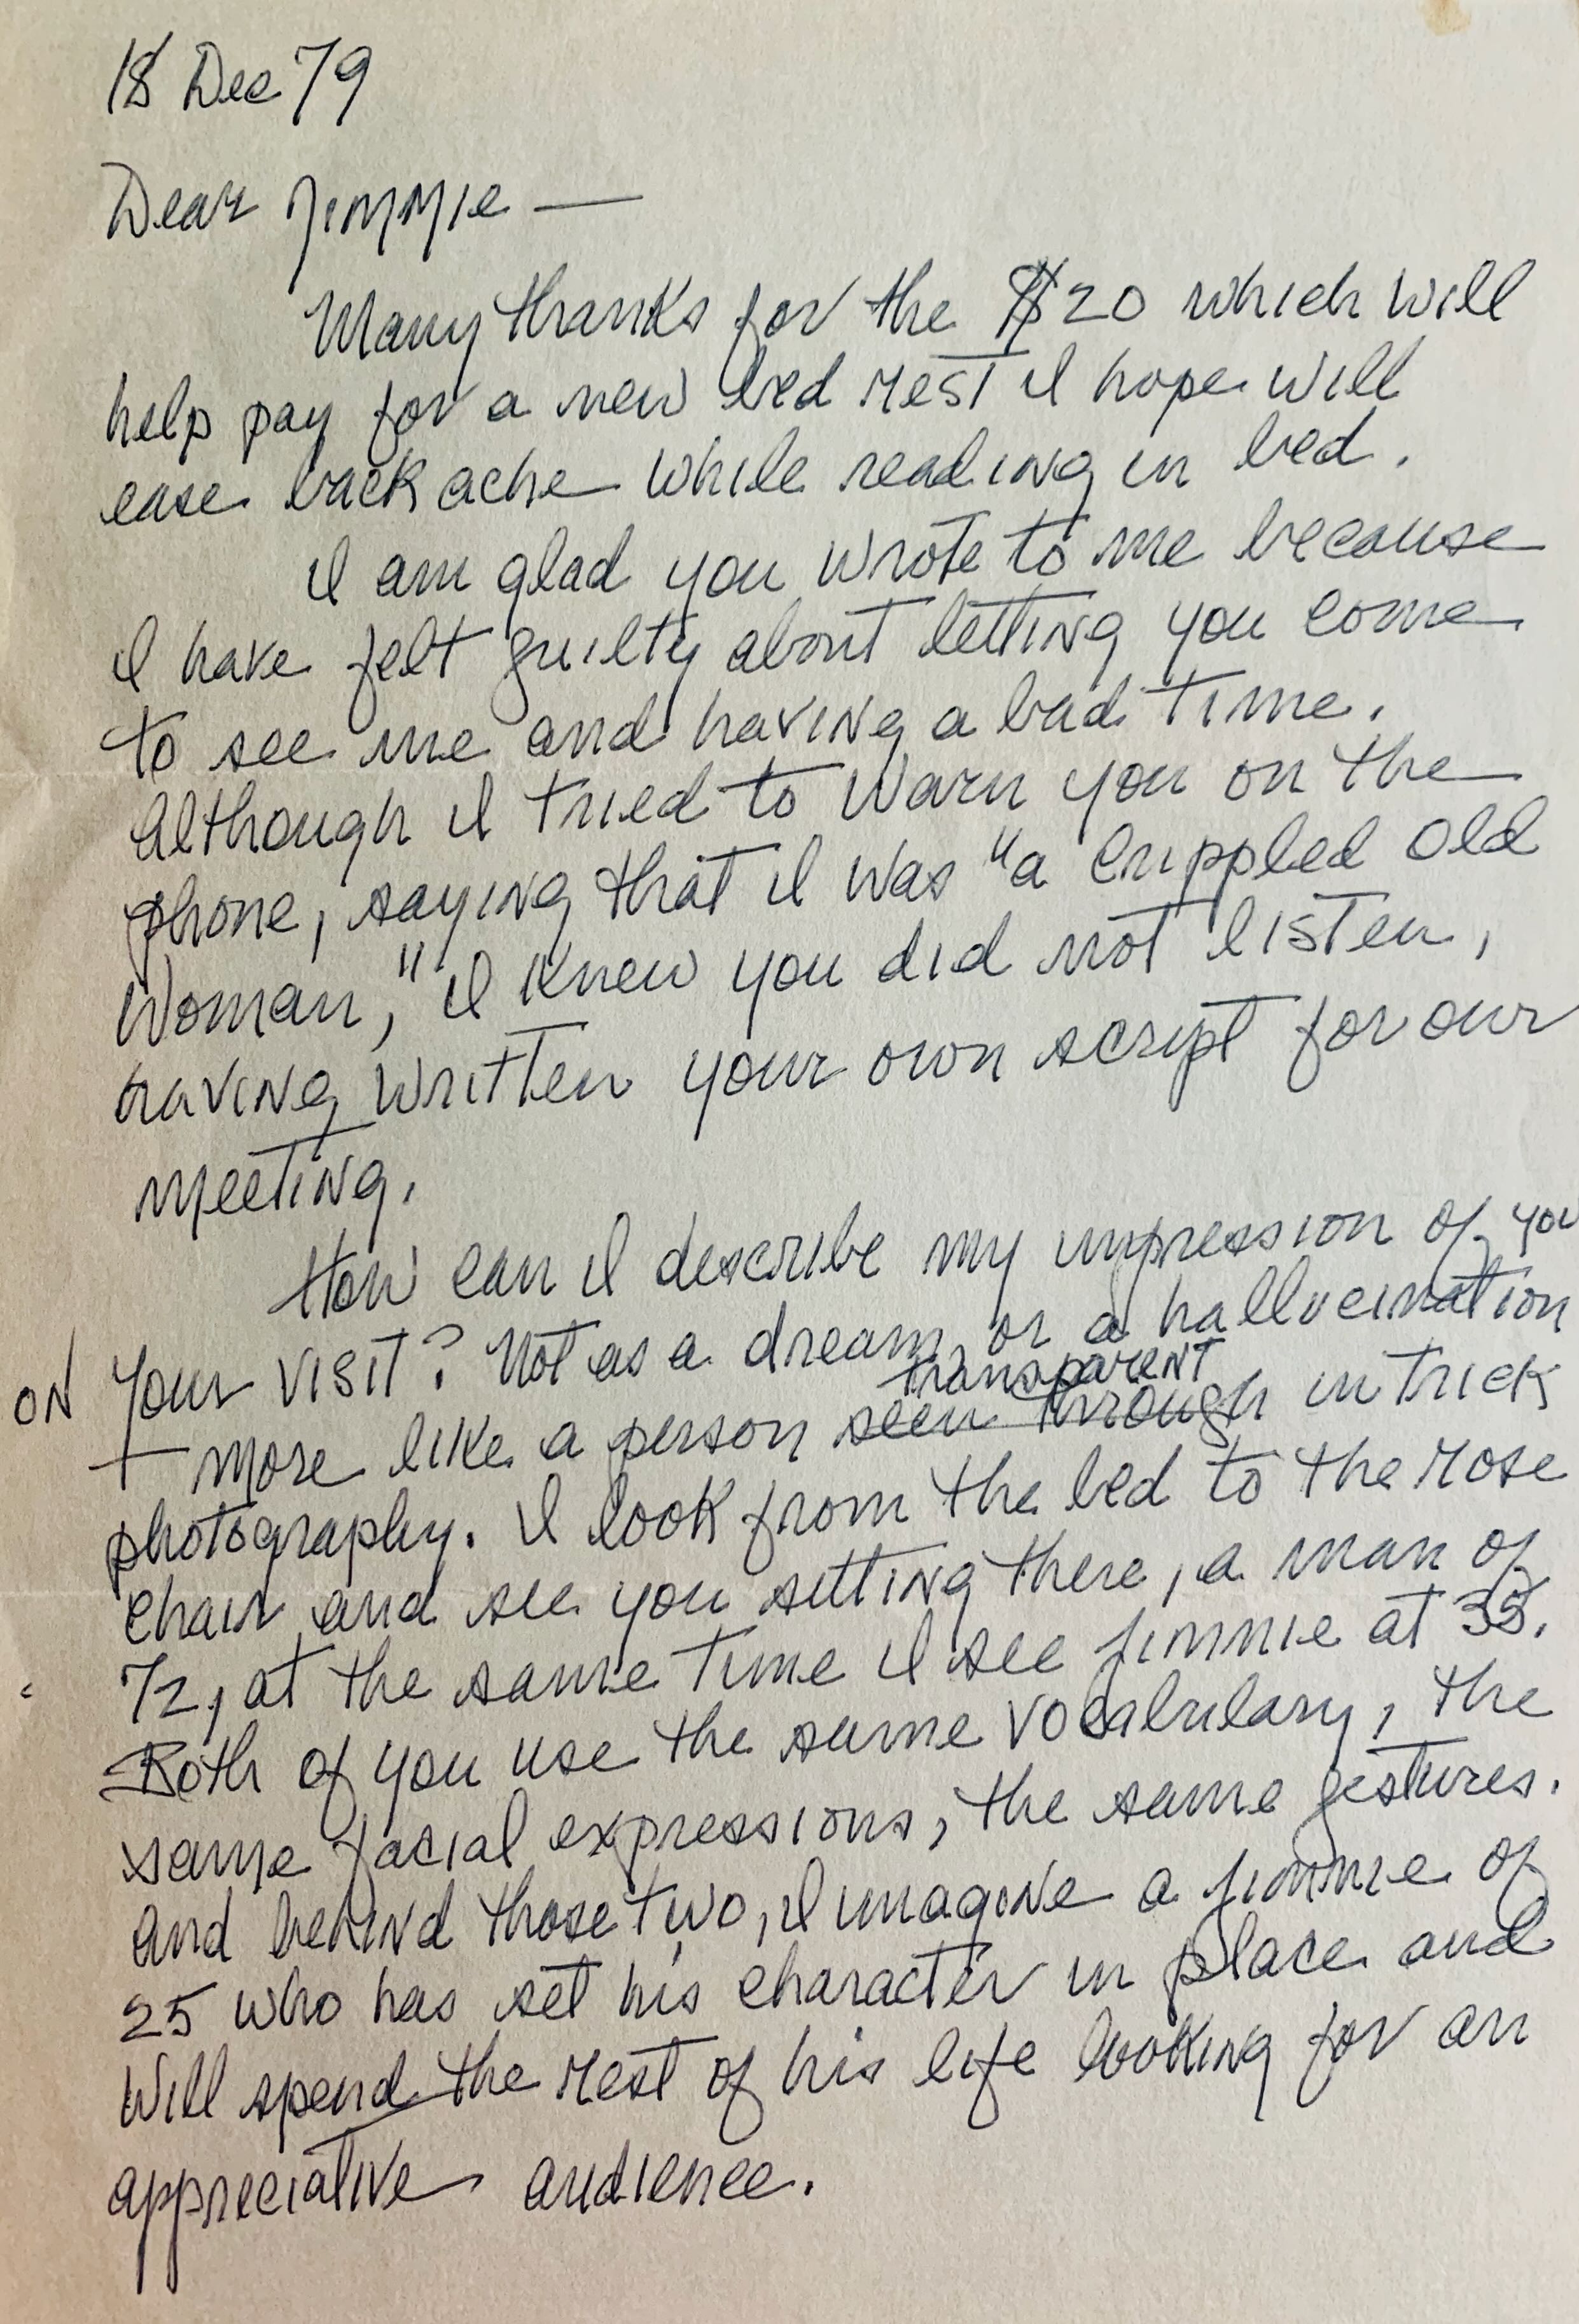 18 Dec 79
Dear Jimmie —
Many thanks for the $20 which will
help pay for a new bed rest I hope will
ease back ache while reading in bed.
I am glad you wrote to me because
I have felt guilty about letting you come
to see me and having a bad time.
Although I tried to warn you on the
phone, saying that I was "a crippled old
woman," I knew you did not listen,
having written your own script for our
meeting.
How can I describe my impression of you
ON your visit? Not as a dream, or a hallucination
transparent
— more like a person seen through in trick
photography. I look from the bed to the rose
chair and see you sitting there, a man of
72, at the same time I see Jimmie at 35.
Both of you use the same vocabulary, the
same facial expressions, the same gestures.
And behind those two, I imagine a Jimmie of
25 who has set his character in place and
will spend the rest of his life looking for an
appreciative audience.